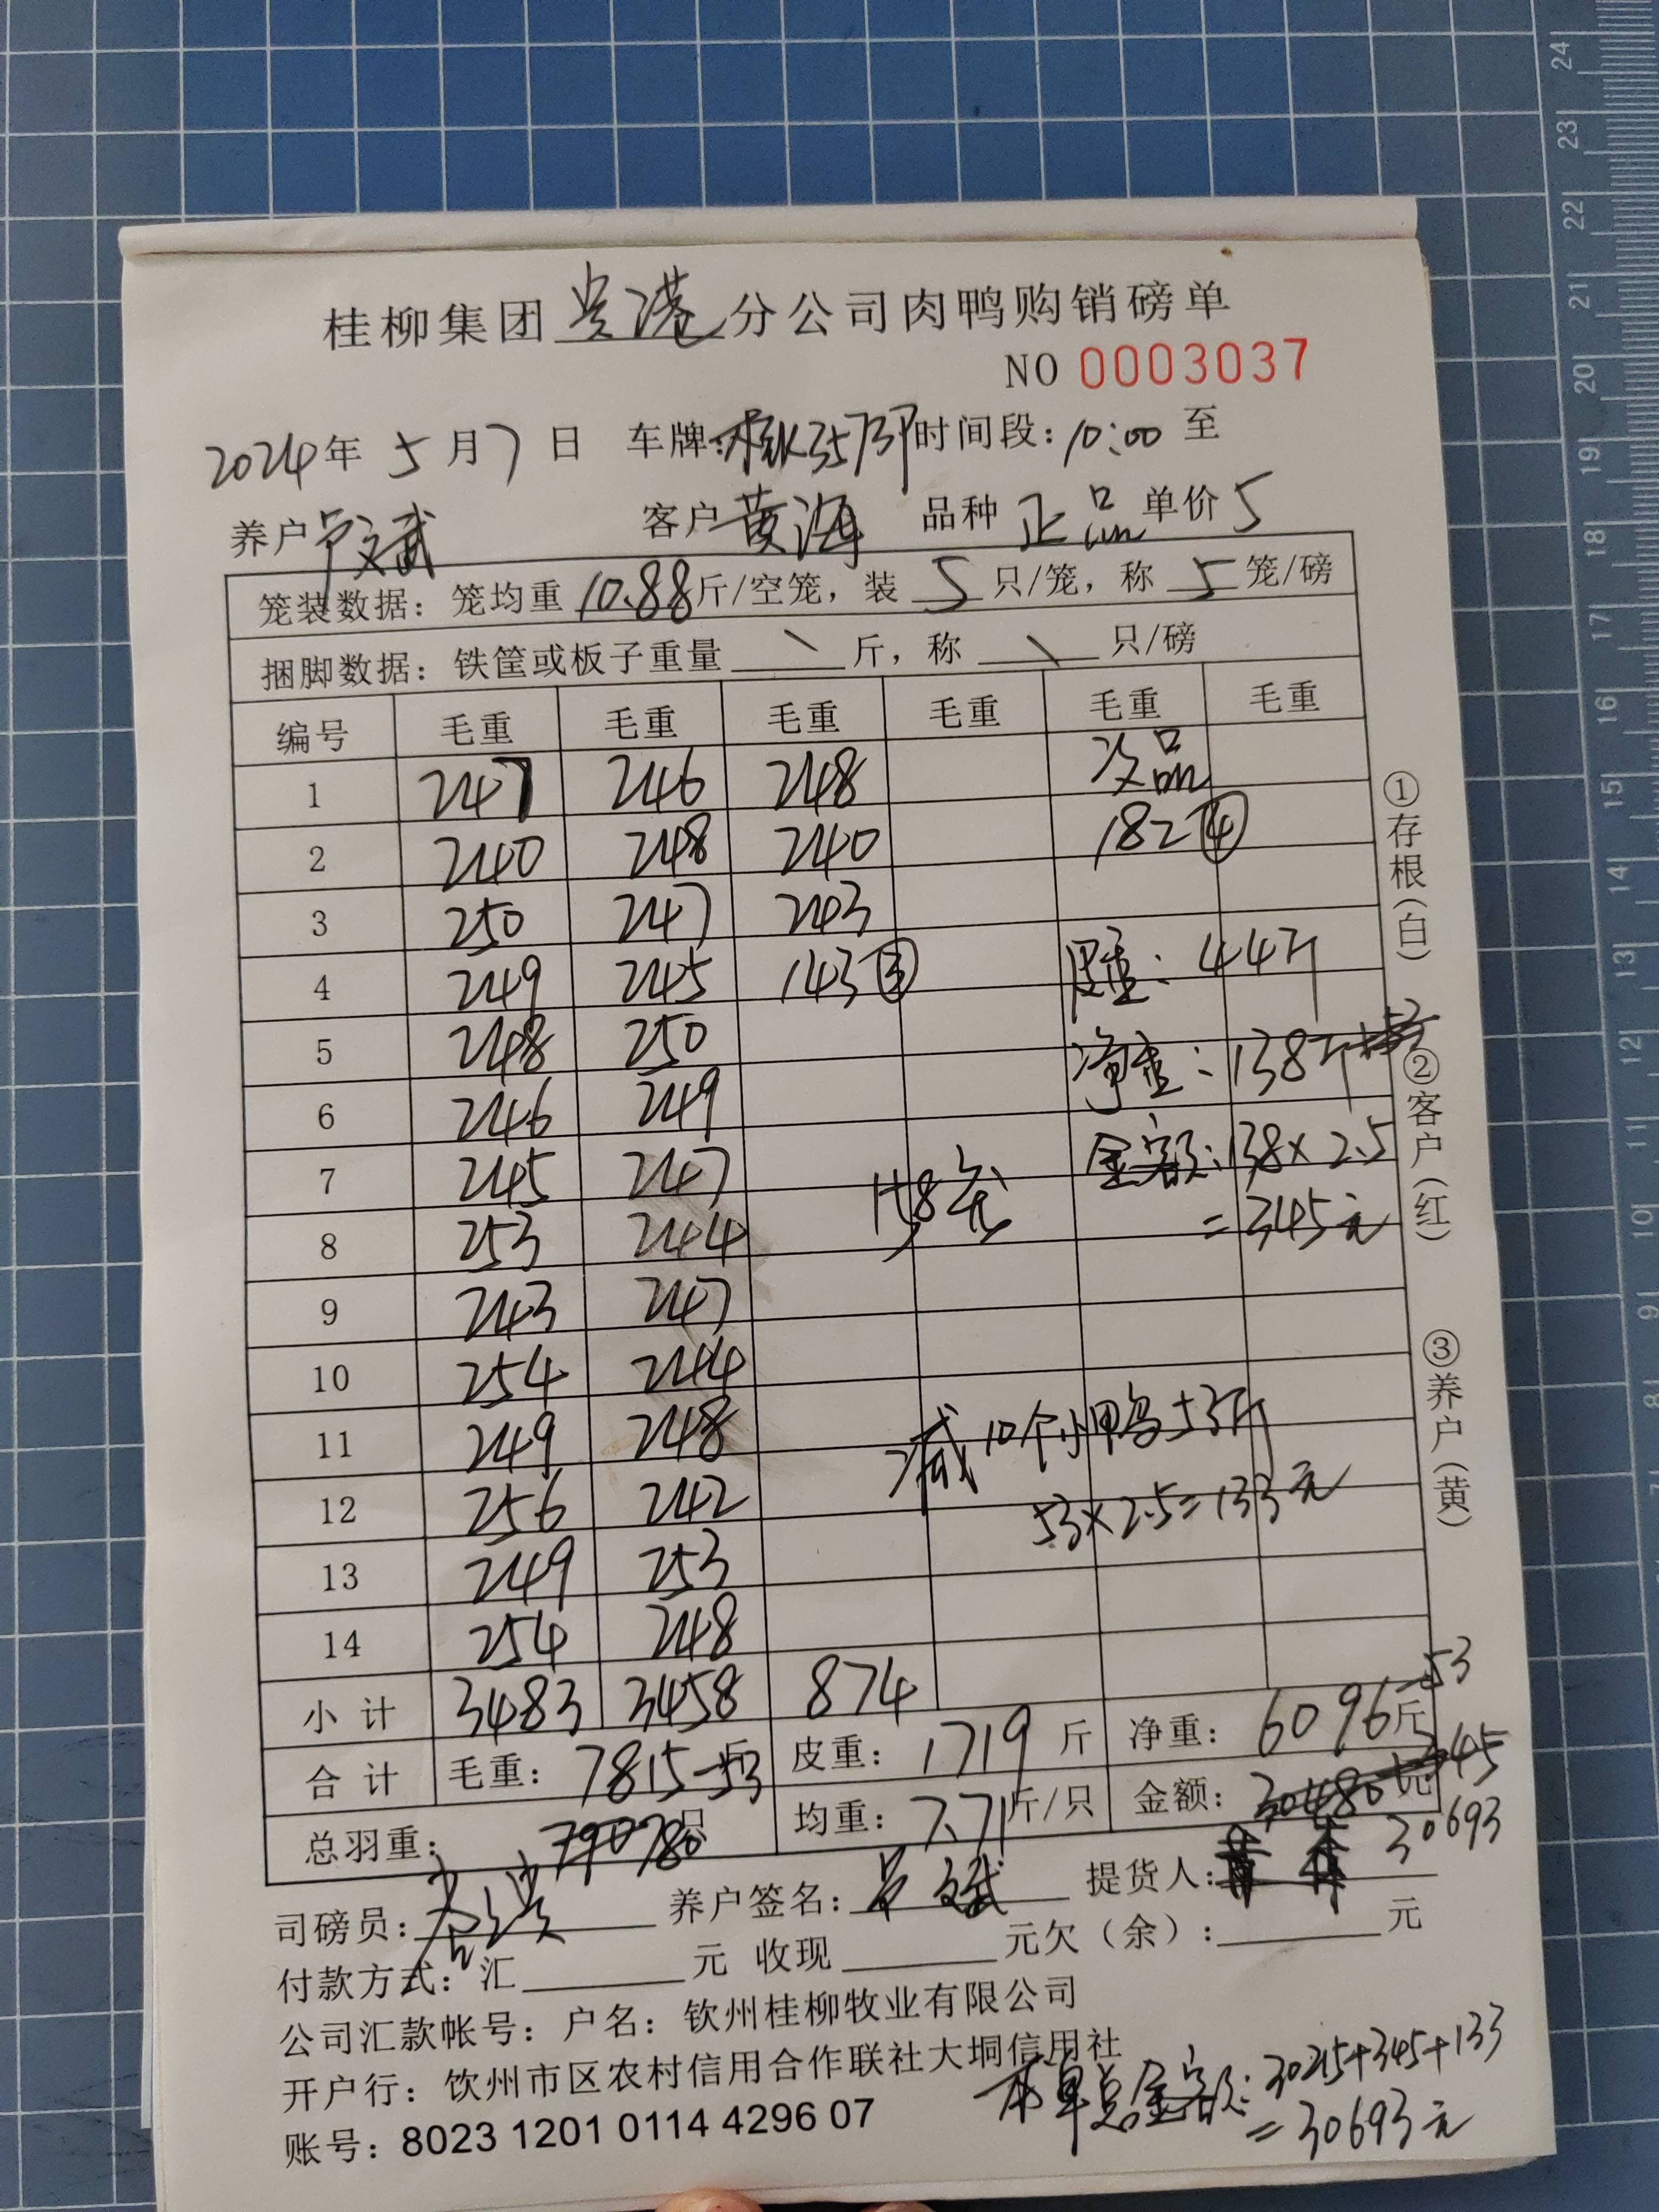 桂柳集团贵港分公司肉鸭购销磅单
NO 0003037
2024年 5月7日 车牌: 时间段:10:00 至
养户 卢文武 客户 黄海 品种 正品 单价 5
笼装数据: 笼均重 10.88 斤/空笼, 装 5 只/笼, 称 5 笼/磅
捆脚数据: 铁筐或板子重量 \ 斤, 称 \ 只/磅
编号 毛重 毛重 毛重 毛重 毛重 毛重
1 247 246 248 次品
2 240 248 240 182④
3 250 247 243
4 249 245 143③ 皮重: 44斤
5 248 250 净重: 138斤
6 246 249
7 245 247 金额: 138×2.5
8 253 244 158笼 =345元
9 243 247
10 254 244
11 249 248 减10个小鸭53斤
12 256 242 53×2.5=133元
13 249 253
14 254 248
小计 3483 3458 874
合计 毛重: 7815-53 皮重: 1719 斤 净重: 6096斤-53
总羽重: 790 780只 均重: 7.71斤/只 金额: 30480元+345
30693
司磅员: 养户签名: 卢文武 提货人:
付款方式: 汇 元 收现 元欠(余): 元
公司汇款帐号: 户名: 钦州桂柳牧业有限公司
开户行: 钦州市区农村信用合作联社大垌信用社
账号: 8023 1201 0114 4296 07
本单总金额: 30215+345+133
=30693元
①存根(白) ②客户(红) ③养户(黄)
24
23
22
21
20
19
18
17
16
15
14
13
12
11
10
9
8